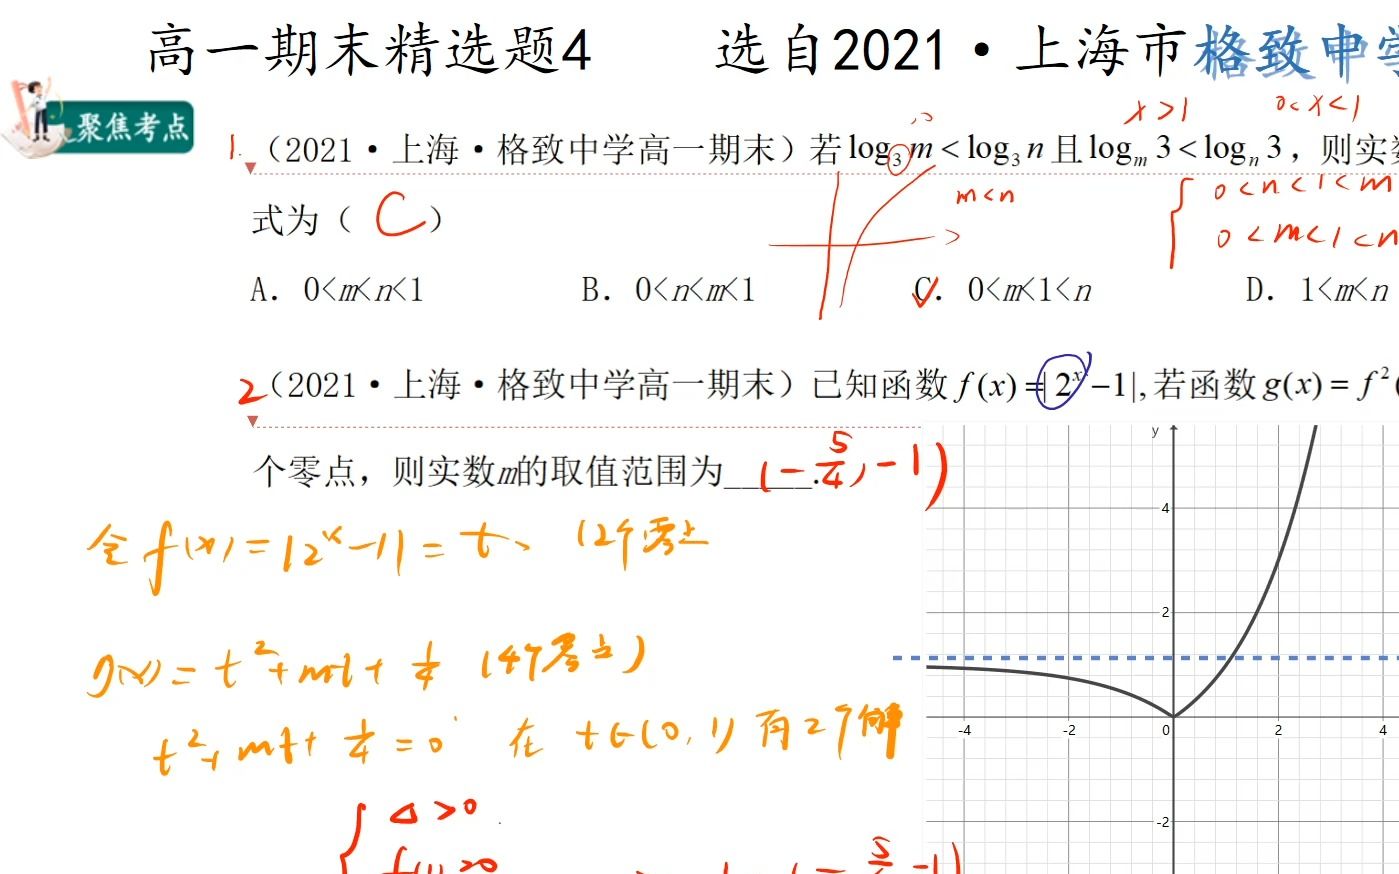 高一期末精选题4 选自2021·上海市格致中学
聚焦考点
x>1 0<x<1
1. （2021·上海·格致中学高一期末）若log₃m<log₃n且logₘ3<logₙ3，则实数
m<n 0<n<1<m
式为（ C ）
0<m<1<n
A. 0<m<n<1 B. 0<n<m<1 C. 0<m<1<n D. 1<m<n
2（2021·上海·格致中学高一期末）已知函数f(x)=|2ˣ−1|,若函数g(x)=f²(
个零点，则实数m的取值范围为_____.(-5/4,-1)
令f(x)=|2ˣ-1|=t、（2个零点
g(x)=t²+mt+1/4（4个零点）
t²+mt+1/4=0 在 t∈(0,1)有2个解
Δ>0
f(1)>0
y
4
2
-4 -2 0 2 4
-2